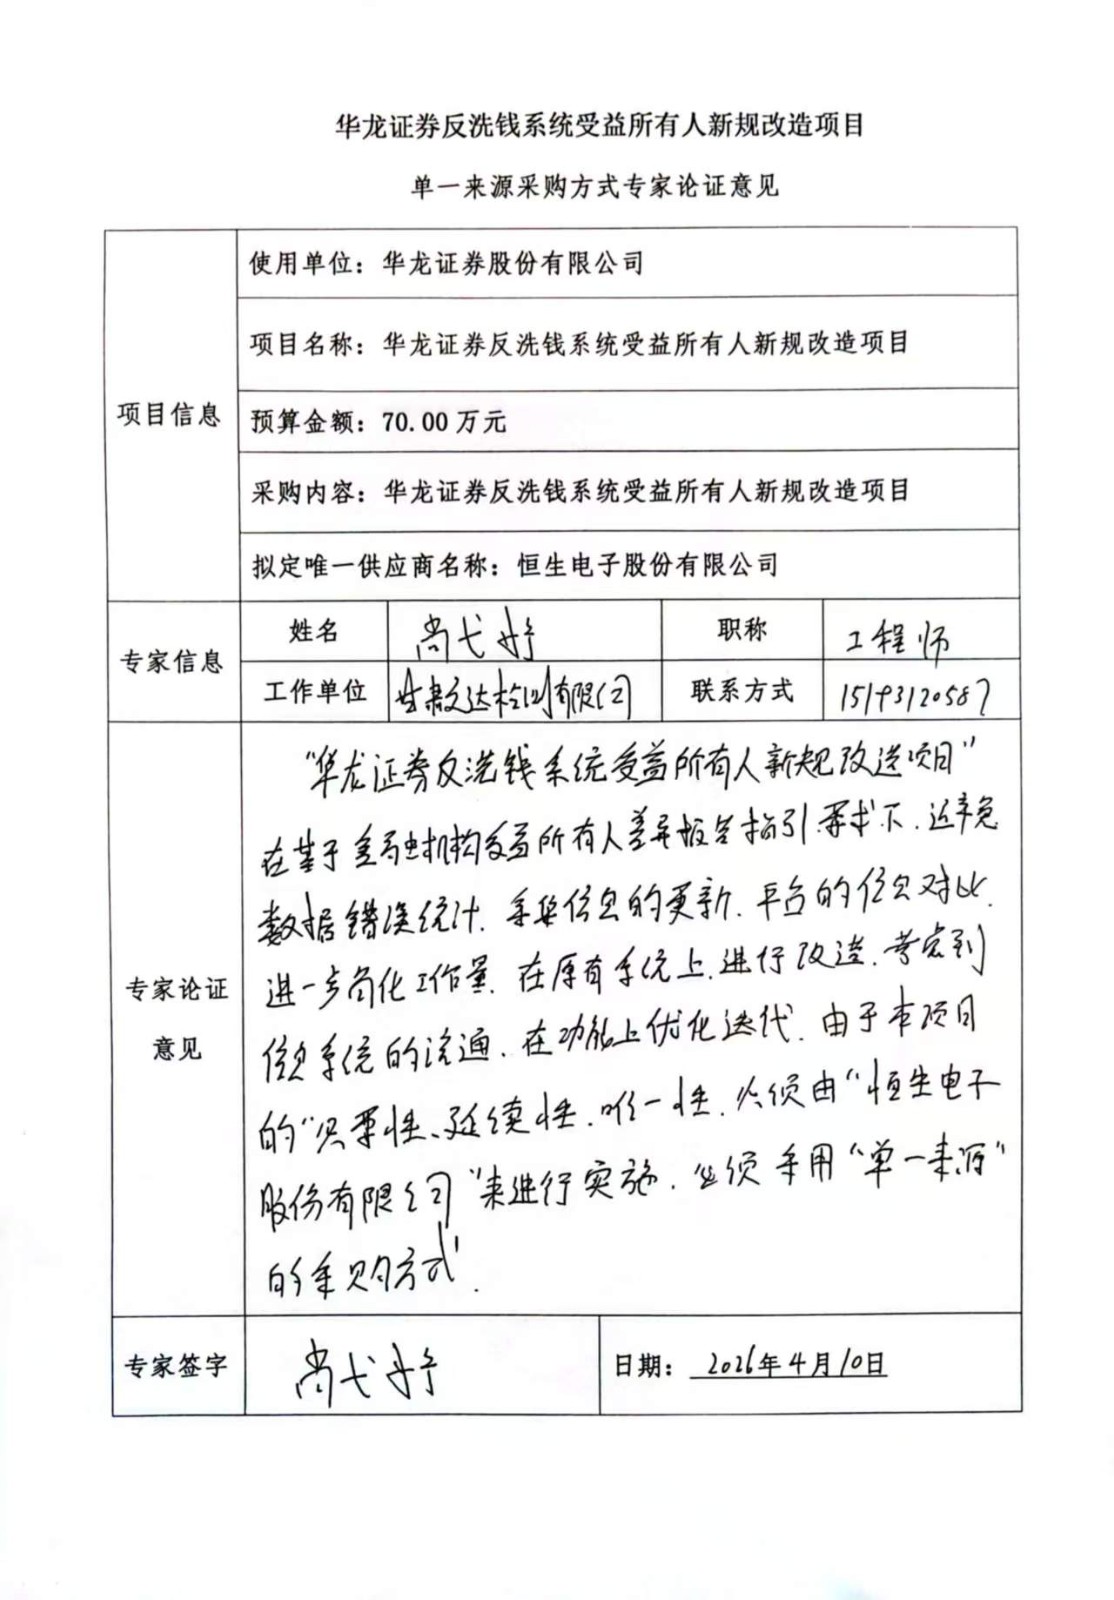 华龙证券反洗钱系统受益所有人新规改造项目
单一来源采购方式专家论证意见
项目信息
使用单位：华龙证券股份有限公司
项目名称：华龙证券反洗钱系统受益所有人新规改造项目
预算金额：70.00万元
采购内容：华龙证券反洗钱系统受益所有人新规改造项目
拟定唯一供应商名称：恒生电子股份有限公司
专家信息
姓名
尚弋婷
职称
工程师
工作单位
甘肃交达检测有限公司
联系方式
15193120587
专家论证
意见
“华龙证券反洗钱系统受益所有人新规改造项目”
在基于金融机构受益所有人差异报告指引要求下.
数据错误统计.采集信息的更新.平台的信息对比.
进一步简化工作量.在原有系统上.进行改造.考虑到
信息系统的流通.在功能上优化迭代.由于本项目
的“必要性、延续性.唯一性.必须由“恒生电子
股份有限公司”来进行实施.必须采用“单一来源”
的采购方式.
专家签字
尚弋婷
日期：2026年4月10日